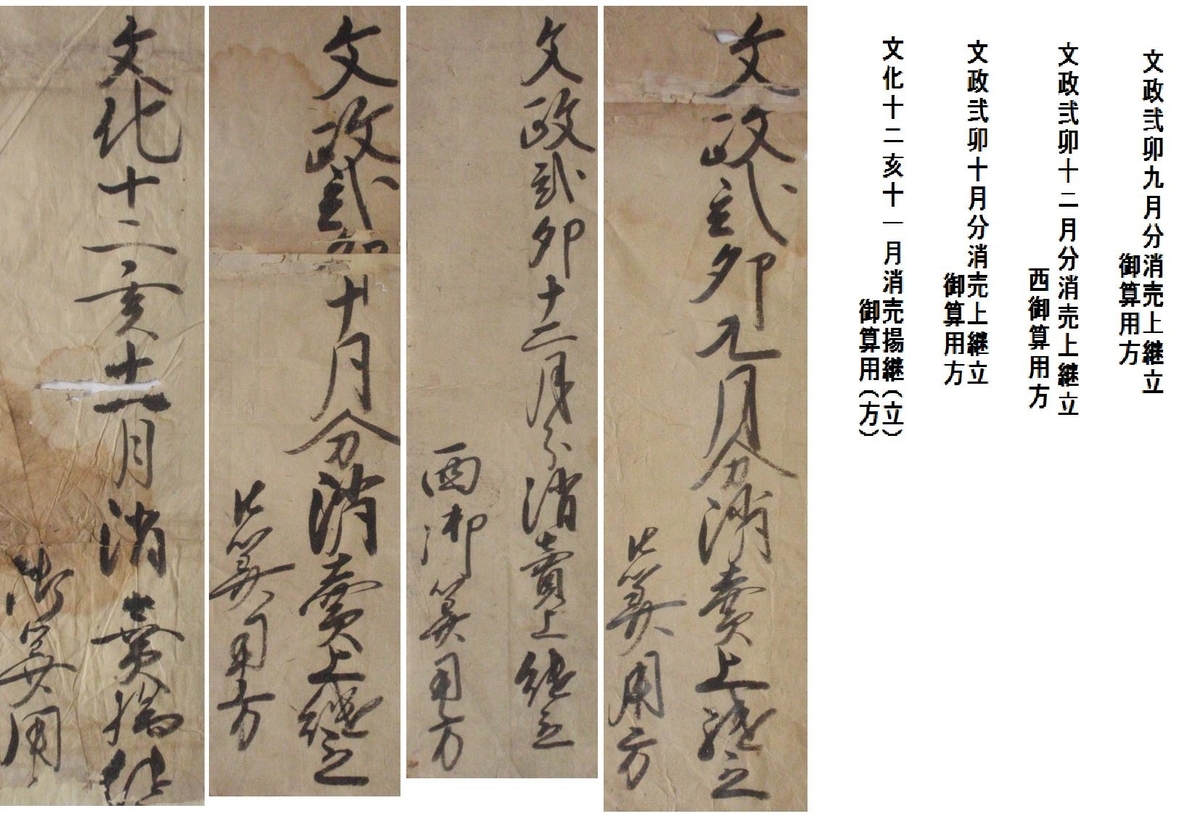 文政弐卯九月分消売上継立
御算用方
文政弐卯十二月分消売上継立
西御算用方
文政弐卯十月分消売上継立
御算用方
文化十二亥十一月消売揚継(立)
御算用(方)
文政弐卯九月分消賣上継立
御算用方
文政弐卯十二月分消賣上継立
西御算用方
文政弐卯十月分消賣上継立
御算用方
文化十二亥十一月消賣揚継
御算用